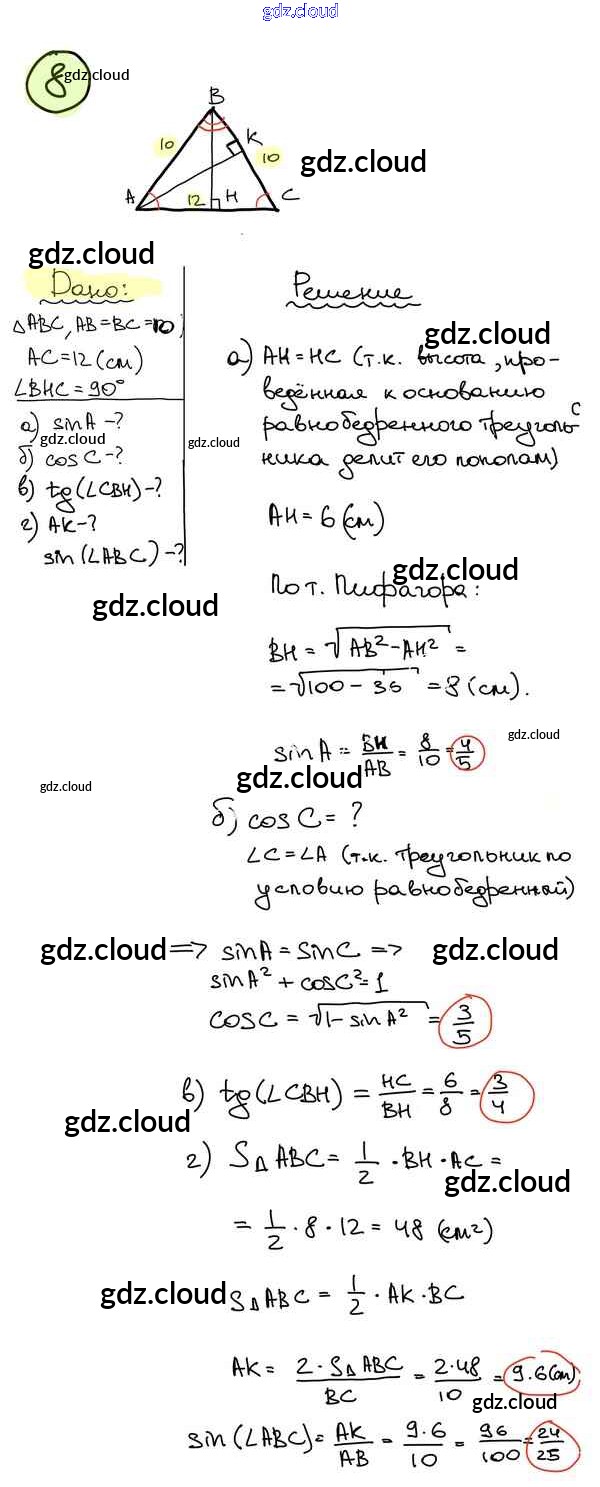 gdz.cloud
8 gdz.cloud
B
10
K
10
gdz.cloud
A
12
H
C
gdz.cloud
Дано:
ΔABC, AB=BC=10;
AC=12 (см)
∠BHC=90°
а) sinA-?
gdz.cloud
б) cosC-?
в) tg(∠CBH)-?
г) AK-?
sin(∠ABC)-?
gdz.cloud
gdz.cloud
Решение
gdz.cloud
а) AH=HC (т.к. высота, про-
ведённая к основанию
равнобедренного треуголь-
ника делит его пополам)
AH=6 (см)
gdz.cloud
По т. Пифагора:
BH = √AB²-AH² =
= √100-36 = 8 (см).
sinA = BH/AB = 8/10 = 4/5
gdz.cloud
gdz.cloud
gdz.cloud
б) cosC = ?
∠C=∠A (т.к. треугольник по
условию равнобедренный)
gdz.cloud => sinA = sinC => gdz.cloud
sinA² + cosC²=1
cosC = √1-sinA² = 3/5
в) tg(∠CBH) = HC/BH = 6/8 = 3/4
gdz.cloud
г) SΔABC = 1/2 · BH · AC =
gdz.cloud
= 1/2 · 8 · 12 = 48 (см²)
gdz.cloud SΔABC = 1/2 · AK · BC
AK = 2·SΔABC/BC = 2·48/10 = 9.6(см)
gdz.cloud
sin(∠ABC) = AK/AB = 9.6/10 = 96/100 = 24/25